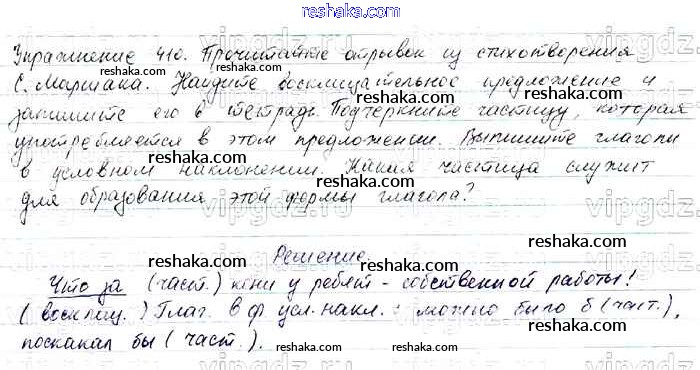 reshaka.com
Упражнение 410. Прочитайте отрывок из стихотворения
reshaka.com
С. Маршака. Найдите восклицательное предложение и
reshaka.com
запишите его в тетрадь. Подчеркните частицу, которая
reshaka.com
употребляется в этом предложении. Выпишите глаголы
reshaka.com
в условном наклонении. Какая частица служит
reshaka.com
для образования этой формы глагола?
reshaka.com
Решение.
reshaka.com
Что за (част.) кони у ребят - собственной работы!
reshaka.com
(восклиц.) Глаг. в ф усл. накл.: можно было б (част.),
reshaka.com
поскакал бы (част.).
reshaka.com